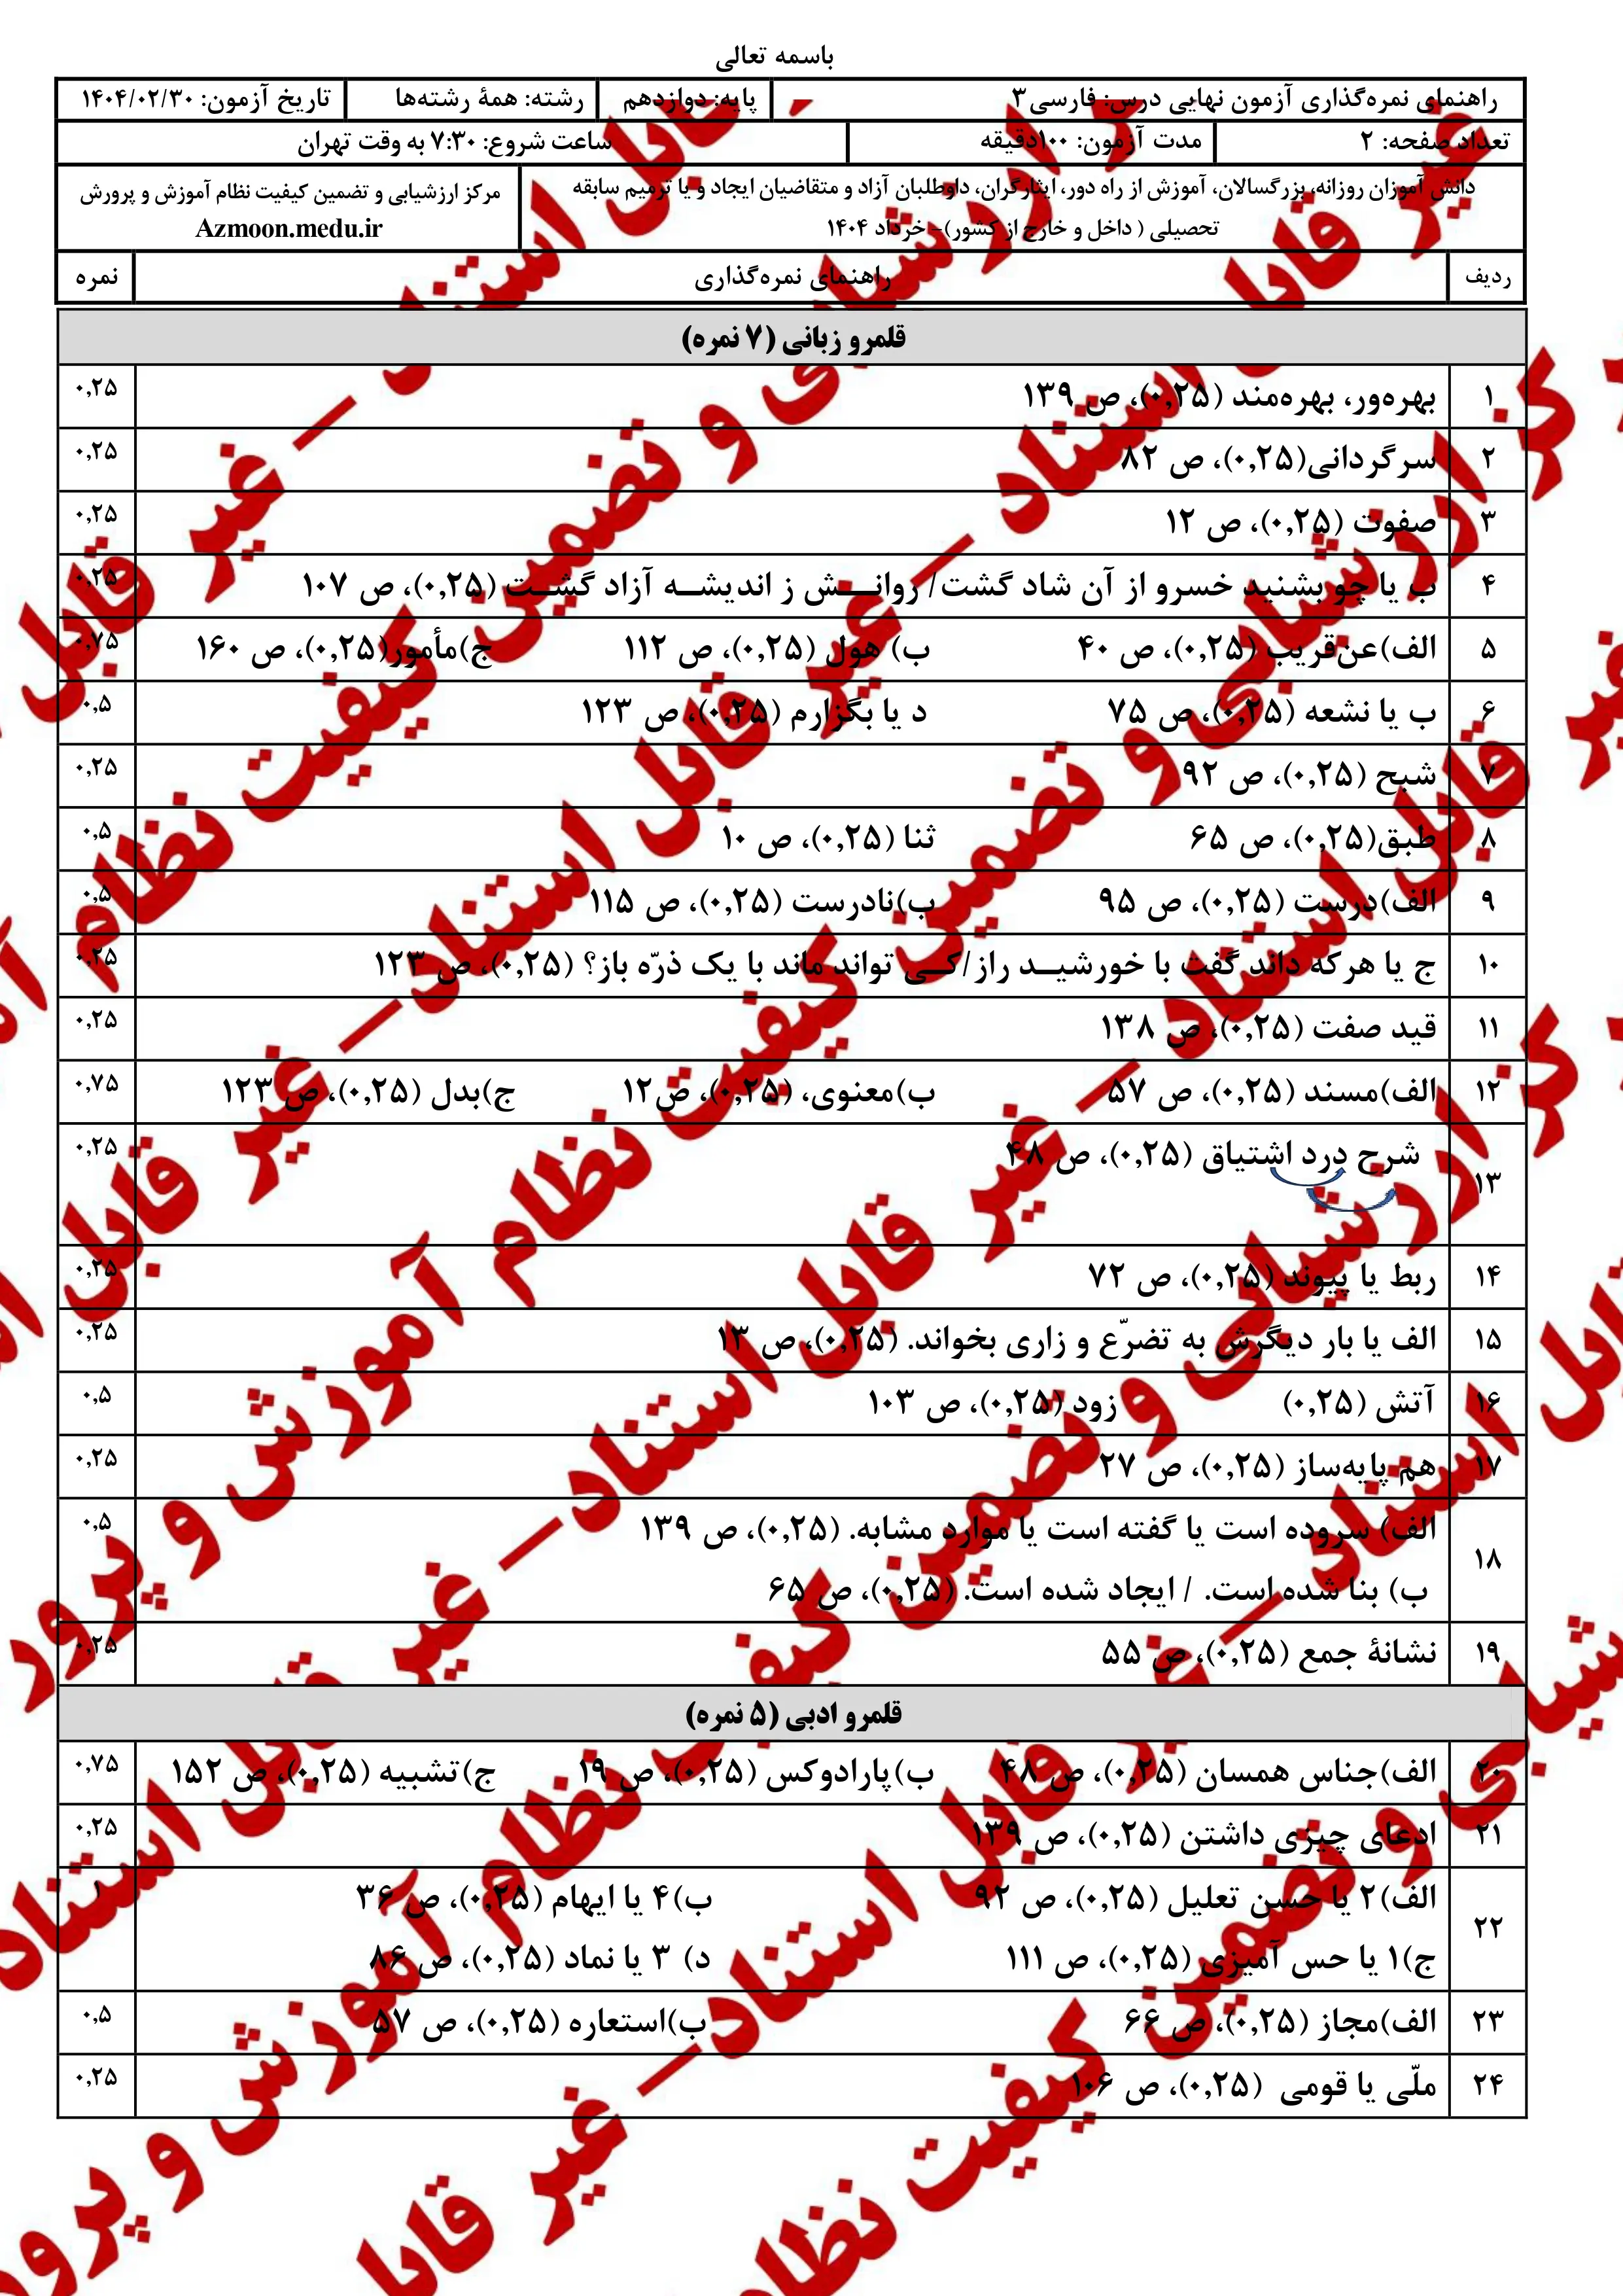 باسمه تعالی
راهنمای نمره‌گذاری آزمون نهایی درس: فارسی۳ پایه: دوازدهم رشته: همۀ رشته‌ها تاریخ آزمون: ۱۴۰۴/۰۲/۳۰
تعداد صفحه: ۲ مدت آزمون: ۱۰۰دقیقه ساعت شروع: ۷:۳۰ به وقت تهران
دانش آموزان روزانه، بزرگسالان، آموزش از راه دور، ایثارگران، داوطلبان آزاد و متقاضیان ایجاد و یا ترمیم سابقه
تحصیلی ( داخل و خارج از کشور)- خرداد ۱۴۰۴
مرکز ارزشیابی و تضمین کیفیت نظام آموزش و پرورش
Azmoon.medu.ir
ردیف راهنمای نمره‌گذاری نمره
قلمرو زبانی (۷ نمره)
۱ بهره‌ور، بهره‌مند (۰,۲۵)، ص ۱۳۹ ۰,۲۵
۲ سرگردانی(۰,۲۵)، ص ۸۲ ۰,۲۵
۳ صفوت (۰,۲۵)، ص ۱۲ ۰,۲۵
۴ ب یا چو بشنید خسرو از آن شاد گشت/ روانـــش ز اندیشــه آزاد گشــت (۰,۲۵)، ص ۱۰۷ ۰,۲۵
۵ الف)عن‌قریب (۰,۲۵)، ص ۴۰ ب) هول (۰,۲۵)، ص ۱۱۲ ج)مأمور(۰,۲۵)، ص ۱۶۰ ۰,۷۵
۶ ب یا نشعه (۰,۲۵)، ص ۷۵ د یا بگزارم (۰,۲۵)، ص ۱۲۳ ۰,۵
۷ شبح (۰,۲۵)، ص ۹۲ ۰,۲۵
۸ طبق(۰,۲۵)، ص ۶۵ ثنا (۰,۲۵)، ص ۱۰ ۰,۵
۹ الف)درست (۰,۲۵)، ص ۹۵ ب)نادرست (۰,۲۵)، ص ۱۱۵ ۰,۵
۱۰ ج یا هرکه داند گفت با خورشیــد راز/کــی تواند ماند با یک ذرّه باز؟ (۰,۲۵)، ص ۱۲۳ ۰,۲۵
۱۱ قید صفت (۰,۲۵)، ص ۱۳۸ ۰,۲۵
۱۲ الف)مسند (۰,۲۵)، ص ۵۷ ب)معنوی، (۰,۲۵)، ص۱۲ ج)بدل (۰,۲۵)، ص ۱۲۳ ۰,۷۵
۱۳ شرح درد اشتیاق (۰,۲۵)، ص ۴۸ ۰,۲۵
۱۴ ربط یا پیوند (۰,۲۵)، ص ۷۲ ۰,۲۵
۱۵ الف یا بار دیگرش به تضرّع و زاری بخواند. (۰,۲۵)، ص ۱۳ ۰,۲۵
۱۶ آتش (۰,۲۵) زود (۰,۲۵)، ص ۱۰۳ ۰,۵
۱۷ هم پایه‌ساز (۰,۲۵)، ص ۲۷ ۰,۲۵
۱۸ الف) سروده است یا گفته است یا موارد مشابه. (۰,۲۵)، ص ۱۳۹ ۰,۵
ب) بنا شده است. / ایجاد شده است. (۰,۲۵)، ص ۶۵
۱۹ نشانۀ جمع (۰,۲۵)، ص ۵۵ ۰,۲۵
قلمرو ادبی (۵ نمره)
۲۰ الف)جناس همسان (۰,۲۵)، ص ۴۸ ب)پارادوکس (۰,۲۵)، ص ۱۹ ج)تشبیه (۰,۲۵)، ص ۱۵۲ ۰,۷۵
۲۱ ادعای چیزی داشتن (۰,۲۵)، ص ۱۳۹ ۰,۲۵
۲۲ الف)۲ یا حسن تعلیل (۰,۲۵)، ص ۹۲ ب)۴ یا ایهام (۰,۲۵)، ص ۳۶ ۱
ج)۱ یا حس آمیزی (۰,۲۵)، ص ۱۱۱ د) ۳ یا نماد (۰,۲۵)، ص ۸۶
۲۳ الف)مجاز (۰,۲۵)، ص ۶۶ ب)استعاره (۰,۲۵)، ص ۵۷ ۰,۵
۲۴ ملّی یا قومی (۰,۲۵)، ص ۱۰۶ ۰,۲۵
مرکز ارزشیابی و تضمین کیفیت نظام آموزش و پرورش
غیر قابل استناد – غیر قابل استناد – غیر قابل استناد